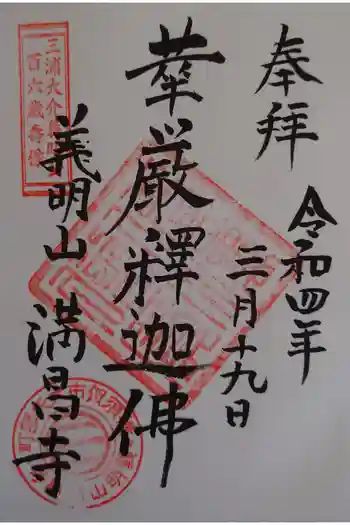 奉拝
令和四年
三月十九日
華厳釋迦佛
三浦大介義明
百六歳寿像
義明山 満昌寺